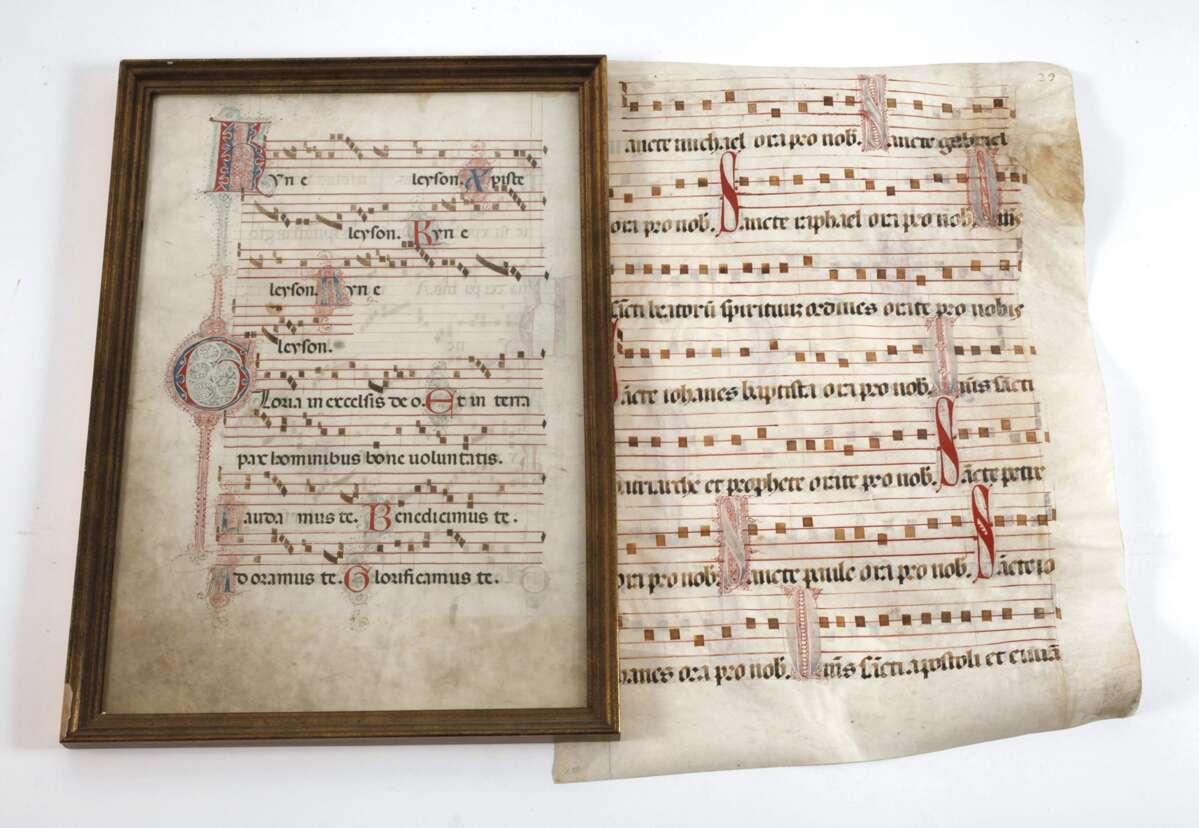 Kyrie leyson. Xpiste
leyson. Kyrie
leyson. Kyrie
leyson.
Gloria in excelsis deo. Et in terra
pax hominibus bone uoluntatis.
Laudamus te. Benedicimus te.
Adoramus te. Glorificamus te.
29
ancte michael ora pro nob. Sancte gabriel
ora pro nob. Sancte raphael ora pro nob. Om̄s
sācti beatorū spirituū ordines orate pro nobis
Sācte iohanes baptista ora pro nob. Om̄s sācti
patriarche et prophete orate pro nob. Sācte petre
ora pro nob. Sancte paule ora pro nob. Sācte io
hanes ora pro nob. Om̄s sācti apostoli et euuā